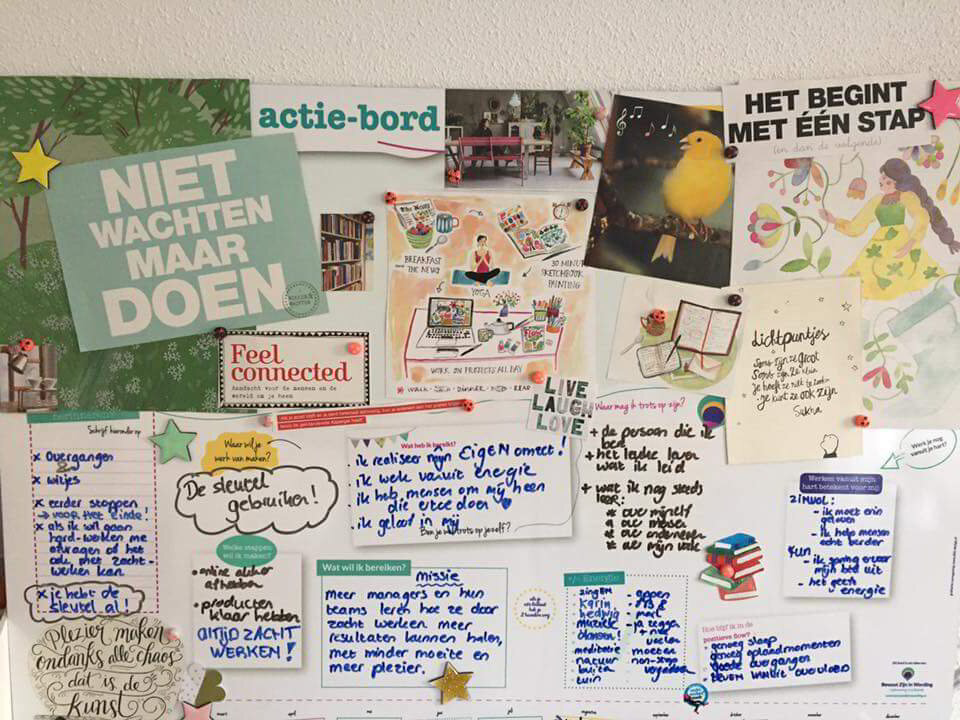 actie-bord
HET BEGINT
MET ÉÉN STAP
(en dan de volgende)
NIET
WACHTEN
MAAR
DOEN
BREAKFAST
THE NEWS
YOGA
30 MINUTE
SKETCHBOOK
PAINTING
WORK ON PROJECTS ALL DAY
Feel
connected
Aandacht voor de mensen en de
wereld om je heen
LIVE
LAUGH
LOVE
Lichtpuntjes
Soms zijn ze groot
Soms zijn ze klein
je hoeft ze niet te zoeken
je kunt ze ook zijn
Sukha
Schrijf hieronder op
x Overgangen
x witjes
x eerder stoppen
→ voor het einde!
x als ik wil gaan
hard-werken me
afvragen of het
ook met zacht-
werken kan
x je hebt de
sleutel al!
Plezier maken
ondanks alle chaos
dat is de
kunst
Waar wil je
werk van maken?
De sleutel
gebruiken!
Welke stappen
wil ik maken?
afbouwen
• producten
klaar hebben
ALTIJD ZACHT
WERKEN!
Wat heb ik bereikt?
• ik realiseer mijn EIGEN omzet!
• ik werk vanuit energie
• ik heb mensen om mij heen
die ertoe doen
• ik geloof in mij
Ben je trots op jezelf?
Wat wil ik bereiken?
missie
meer managers en hun
teams leren hoe ze door
zacht werken meer
resultaten kunnen halen,
met minder moeite en
meer plezier.
Waar mag ik trots op zijn?
+ de persoon die ik
ben
+ het leuke leven
wat ik leid
+ wat ik nog steeds
leer:
* over mijzelf
* over mensen
* over ondernemen
* over mijn vak
+/- Energie
- zingen
- Karin
- hedwig
- muziek
- dansen!
- meditatie
- natuur
- buiten
- tuin
- appen
- mail
- ja zeggen
+ nee
voelen
- moeten
- non-stop
vergaderen
Werk je nog
vanuit je hart?
Werken vanuit mijn
hart betekent voor mij
ZINVOL:
- ik moet erin
geloven
- ik help mensen
echt verder
FUN
- ik spring ervoor
mijn bed uit
- het geeft
energie
Hoe blijf ik in de
positieve flow?
- genoeg slaap
- genoeg oplaadmomenten
- goede overgangen
- LEVEN VANUIT OVERVLOED
Bewust Zijn in Wording
maart
april
mei
juni
juli
augustus
september
oktober
november
december